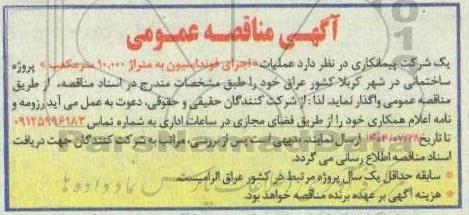 آگهی مناقصه عمومی
یک شرکت پیمانکاری در نظر دارد عملیات « اجرای فونداسیون به متراژ ۱۰,۰۰۰ متر مکعب » پروژه
ساختمانی در شهر کربلا کشور عراق خود را طبق مشخصات مندرج در اسناد مناقصه، از طریق
مناقصه عمومی واگذار نماید. لذا: از شرکت کنندگان حقیقی و حقوقی، دعوت به عمل می آید رزومه و
نامه اعلام همکاری خود را از طریق فضای مجازی در ساعات اداری به شماره تماس ۰۹۱۲۵۹۹۶۱۸۳
تا تاریخ ۱۴۰۴/۰۷/۲۸ ارسال نمایند. بدیهی است پس از بررسی، مراتب به شرکت کنندگان جهت دریافت
اسناد مناقصه اطلاع رسانی می گردد.
• سابقه حداقل یک سال پروژه مرتبط در کشور عراق الزامیست.
• هزینه آگهی بر عهده برنده مناقصه خواهد بود.